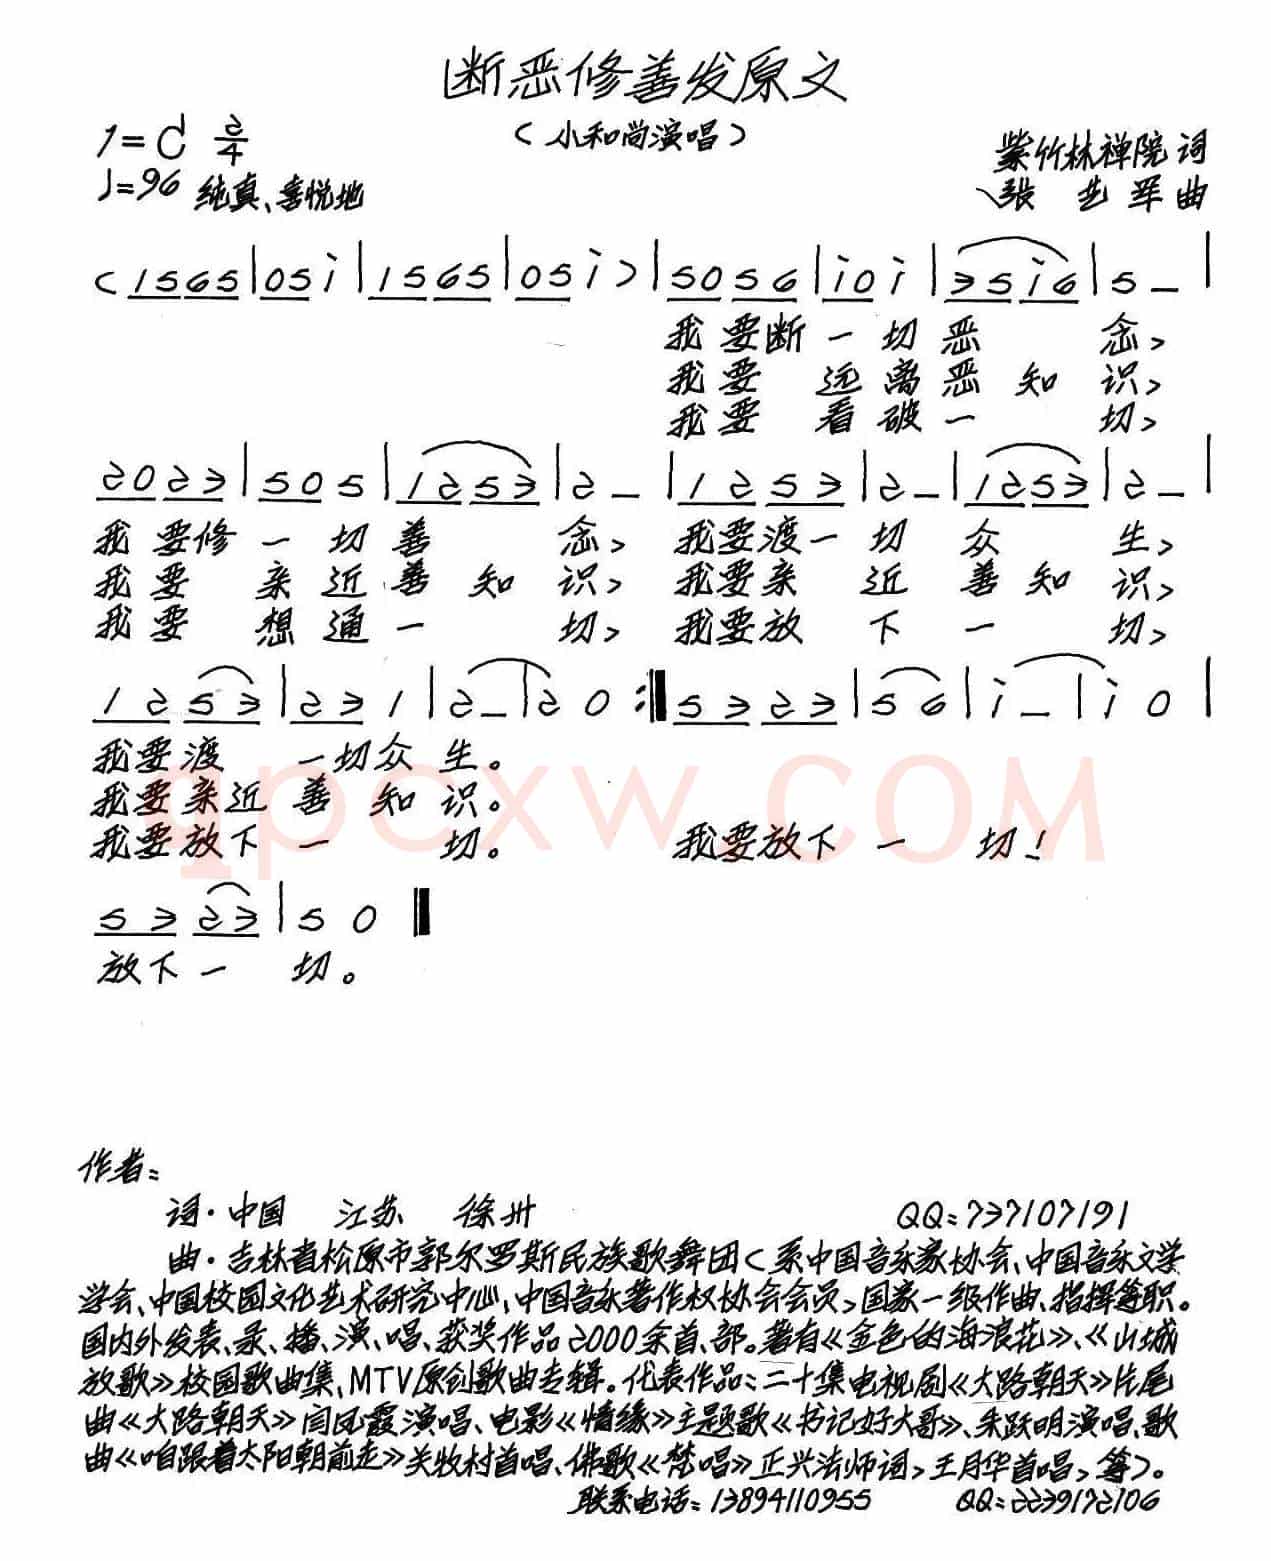 断恶修善发原文
（小和尚演唱）
1=C 2/4
♩=96 纯真、喜悦地
紫竹林禅院 词
张艺军 曲
(1565|05i|1565|05i)|5056|i0i|35i6|5–|
我要断一切恶念，
我要远离恶知识，
我要看破一切，
2023|505|1253|2–|1253|2–|1253|2–|
我要修一切善念，我要渡一切众生，
我要亲近善知识，我要亲近善知识，
我要想通一切，我要放下一切，
1253|231|2–|20:‖5323|56|i–|i0|
我要渡一切众生。
我要亲近善知识。
我要放下一切。我要放下一切！
5323|50‖
放下一切。
qpcxw.COM
作者：
词·中国 江苏 徐州 QQ：737107191
曲·吉林省松原市郭尔罗斯民族歌舞团（系中国音乐家协会、中国音乐文学
学会、中国校园文化艺术研究中心，中国音乐著作权协会会员，国家一级作曲、指挥等职。
国内外发表、录、播、演、唱、获奖作品2000余首、部。著有《金色的海浪花》、《山城
放歌》校园歌曲集，MTV原创歌曲专辑。代表作品：二十集电视剧《大路朝天》片尾
曲《大路朝天》闫凤霞演唱、电影《情缘》主题歌《书记好大哥》、朱跃明演唱、歌
曲《咱跟着太阳朝前走》关牧村首唱、佛歌《梵唱》正兴法师词，王月华首唱，等）。
联系电话：13894110955 QQ：2239172106